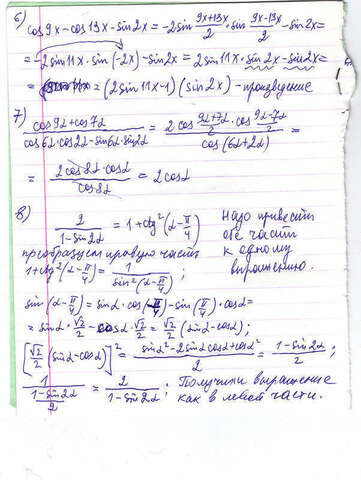 6) cos9x-cos13x-sin2x = -2sin (9x+13x)/2 · sin (9x-13x)/2 - sin2x =
= -2sin11x · sin(-2x) - sin2x = 2sin11x · sin2x - sin2x =
= (2sin11x-1)(sin2x) - произведение
7) (cos9α+cos7α)/(cos6α·cos2α-sin6α·sin2α) = (2cos (9α+7α)/2 · cos (9α-7α)/2)/(cos(6α+2α)) =
= (2cos8α·cosα)/(cos8α) = 2cosα
8) 2/(1-sin2α) = 1+ctg²(α-π/4)
Надо привести
обе части
к одному
выражению.
преобразуем правую часть
1+ctg²(α-π/4) = 1/(sin²(α-π/4));
sin(α-π/4) = sinα·cos(π/4) - sin(π/4)·cosα =
= sinα·√2/2 - cosα·√2/2 = √2/2 (sinα-cosα);
[√2/2 (sinα-cosα)]² = (sinα²-2sinαcosα+cosα²)/2 = (1-sin2α)/2;
1/((1-sin2α)/2) = 2/(1-sin2α);
Получили выражение
как в левой части.